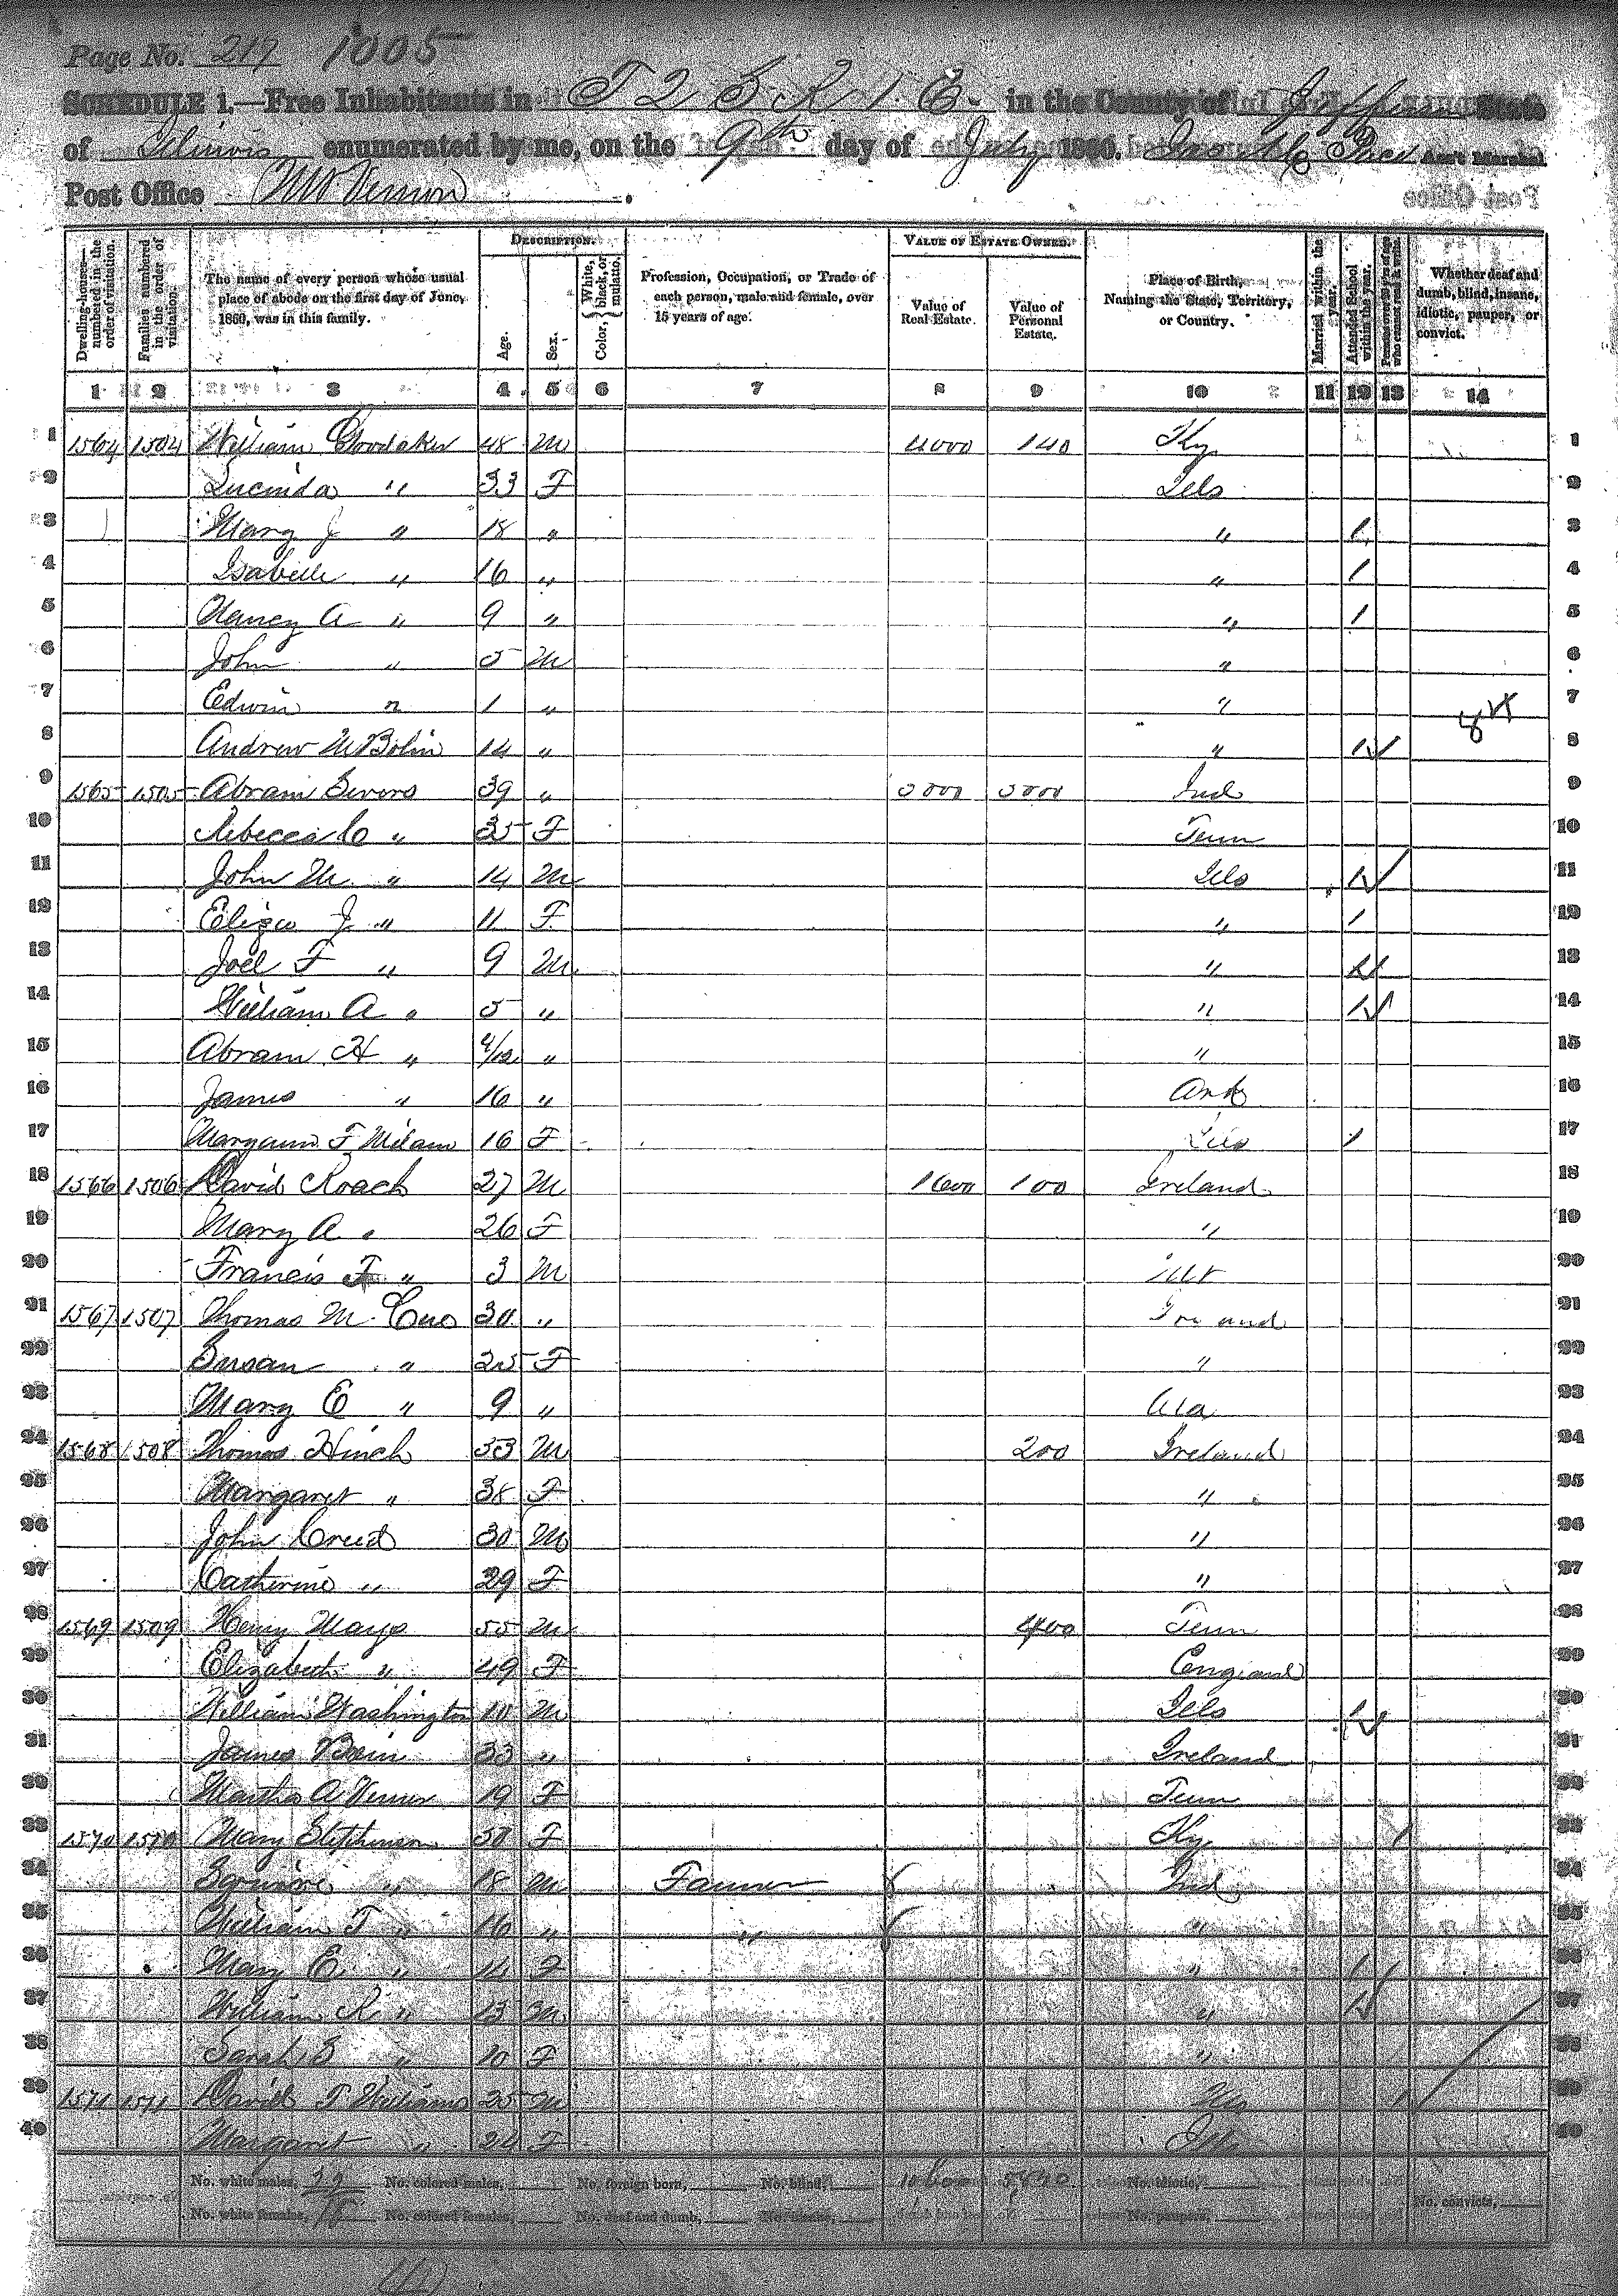 Page No. 217 1005
SCHEDULE 1.—Free Inhabitants in T 2 S R 1 E. in the County of Jefferson State
of Illinois enumerated by me, on the 9th day of July 1860. Ass't Marshal
Post Office Mt Vernon.
DESCRIPTION. VALUE OF ESTATE OWNED.
Dwelling-houses—numbered in the order of visitation. Families numbered in the order of visitation. The name of every person whose usual place of abode on the first day of June, 1860, was in this family. Age. Sex. Color, { White, black, or mulatto. Profession, Occupation, or Trade of each person, male and female, over 15 years of age. Value of Real Estate. Value of Personal Estate. Place of Birth, Naming the State, Territory, or Country. Married within the year. Attended School within the year. Persons over 20 y'rs of age who cannot read & write. Whether deaf and dumb, blind, insane, idiotic, pauper, or convict.
1 2 3 4 5 6 7 8 9 10 11 12 13 14
1 1564 1504 William Goodaker 48 M 4000 140 Ky 1
2 Lucinda " 33 F Ills 2
3 Mary J " 18 " " 1 3
4 Isabelle " 16 " " 1 4
5 Nancy A " 9 " " 1 5
6 John " 5 M " 6
7 Edwin " 1 " " 7
8 Andrew McBolin 14 " " 1 8
9 1565 1505 Abram Severs 39 " 5000 5000 Ind 9
10 Rebecca C " 35 F Tenn 10
11 John M. " 14 M Ills 1 11
12 Eliza J " 11 F " 1 12
13 Joel F " 9 M " 1 13
14 William A " 5 " " 1 14
15 Abram H " 4/12 " " 15
16 James " 16 " Ark 16
17 F Milam 16 F Ills 1 17
18 1566 1506 David Roach 27 M 1600 100 Ireland 18
19 Mary A " 26 F " 19
20 Francis F " 3 M 20
21 1567 1507 Thomas M. 30 " Ireland 21
22 Susan " 25 F " 22
23 Mary E " 9 " Ala 23
24 1568 1508 Thomas Hinch 33 M 200 Ireland 24
25 Margaret " 38 F " 25
26 John Creed 30 M " 26
27 Catherine " 29 F " 27
28 1569 1509 Henry Mays 55 M 400 Tenn 28
29 Elizabeth " 49 F England 29
30 William Washington 10 M Ills 1 30
31 James 33 " Ireland 31
32 Martha A 19 F Tenn 32
33 1570 1510 Mary Stephenson 50 F Ky 1 33
34 Squire " 18 M Farmer Ind 34
35 William T " 16 " " " 35
36 Mary E. " 14 F " 1 36
37 William R " 13 M " 1 37
38 Sarah E " 10 F " 38
39 1571 1511 David T Williams 25 M Ky 1 39
40 Margaret " 20 F Ills 40
No. white males, 22 No. colored males, No. foreign born, No. blind, 10600 5840 No. idiotic,
No. white females, 18 No. colored females, No. deaf and dumb, No. insane, No. paupers, No. convicts,